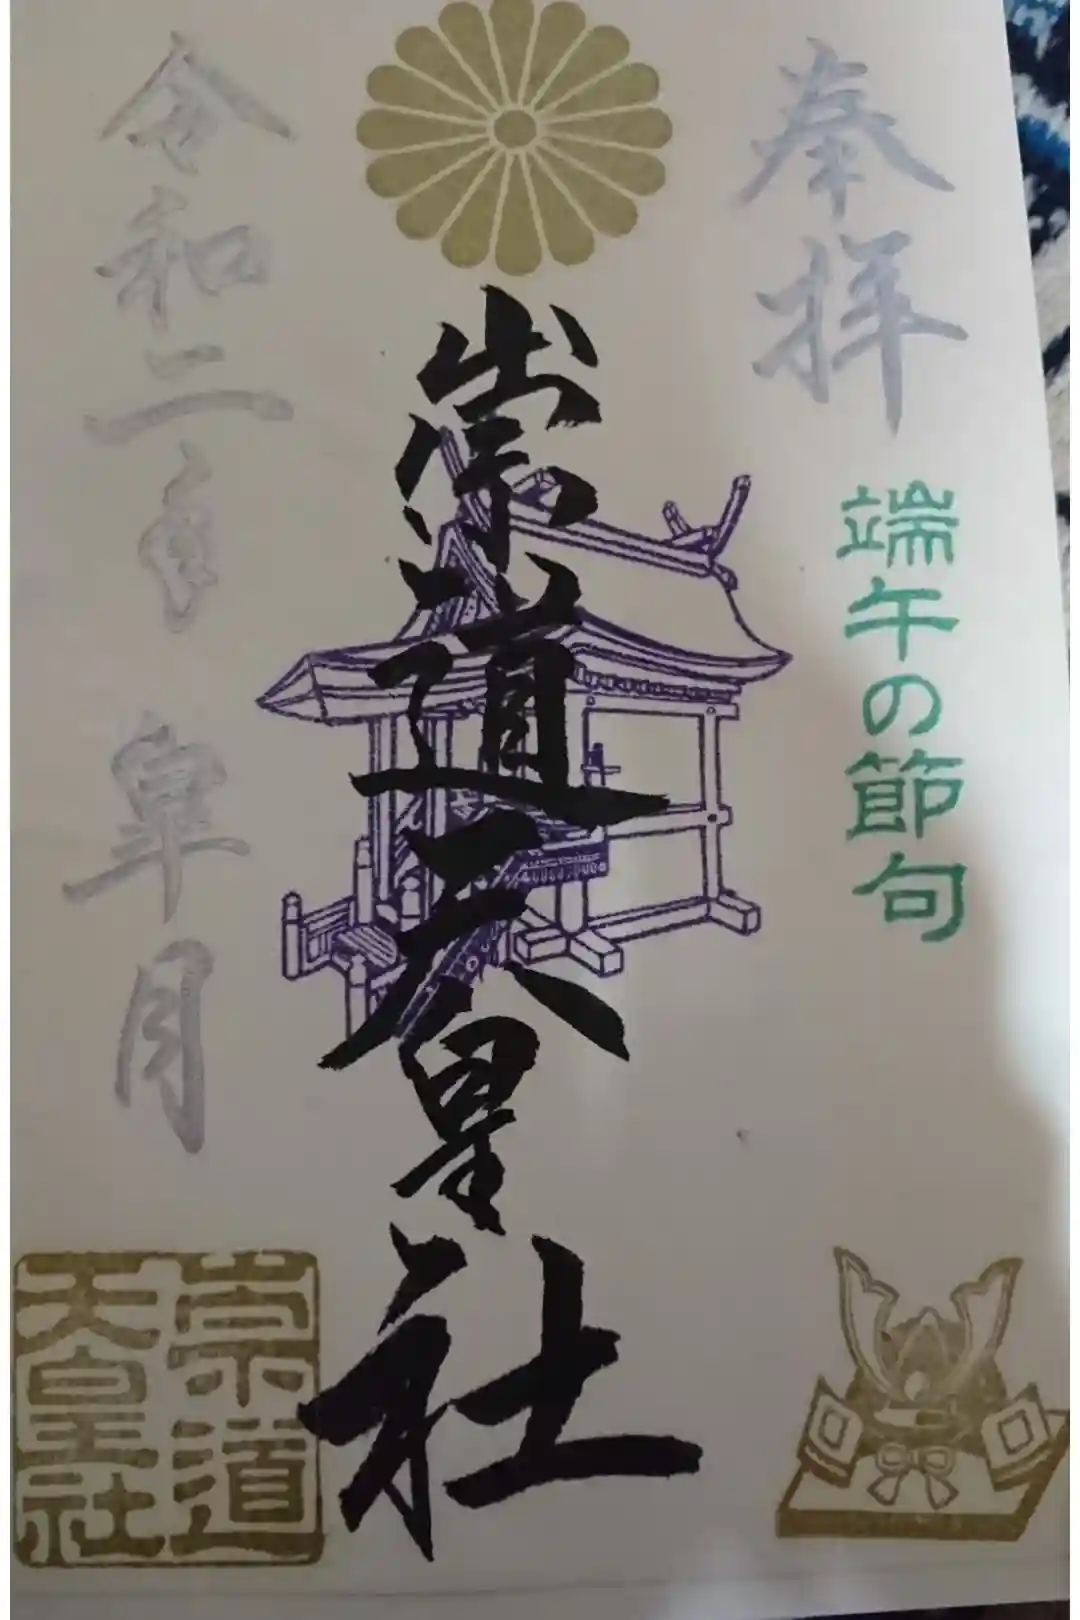 奉拝
端午の節句
崇道天皇社
令和二年
皐月
崇道
天皇社